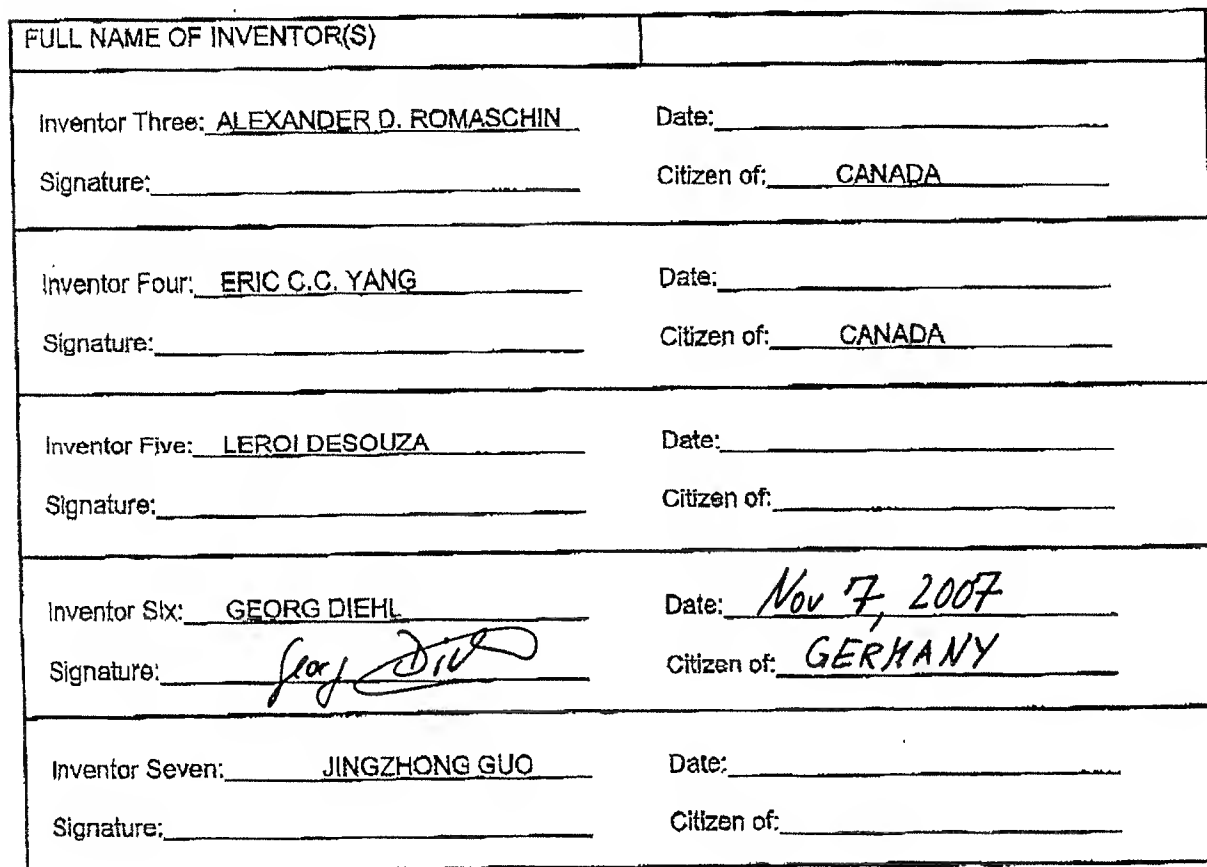 FULL NAME OF INVENTOR(S)
Inventor Three: ALEXANDER D. ROMASCHIN Date:
Signature: Citizen of: CANADA
Inventor Four: ERIC C.C. YANG Date:
Signature: Citizen of: CANADA
Inventor Five: LEROI DESOUZA Date:
Signature: Citizen of:
Inventor Six: GEORG DIEHL Date: Nov 7, 2007
Signature: Georg Diehl Citizen of: GERMANY
Inventor Seven: JINGZHONG GUO Date:
Signature: Citizen of: